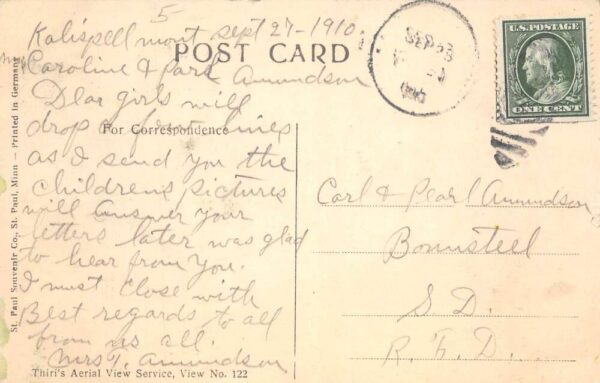 5
Kalispell mont sept 27-1910
POST CARD
Caroline & Pearl Amundson
Dear girls will
drop a few lines
For Correspondence
as I send you the
childrens pictures
will answer your
letters later was glad
to hear from you.
I must close with
Best regards to all
from us all.
Mrs T. Amundson
Thiri's Aerial View Service, View No. 122
St. Paul Souvenir Co., St. Paul, Minn — Printed in Germany
SEP
U.S. POSTAGE
ONE CENT
Carl & Pearl Amundson
Bonnsteel
S.D.
R.F.D.